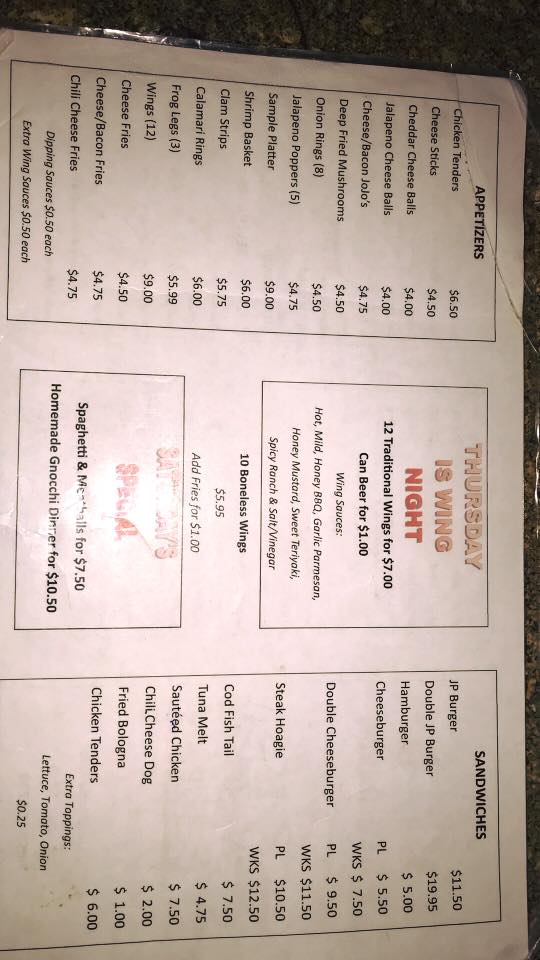 APPETIZERS
Chicken Tenders $6.50
Cheese Sticks $4.50
Cheddar Cheese Balls $4.00
Jalapeno Cheese Balls $4.00
Cheese/Bacon JoJo's $4.75
Deep Fried Mushrooms $4.50
Onion Rings (8) $4.50
Jalapeno Poppers (5) $4.75
Sample Platter $9.00
Shrimp Basket $6.00
Clam Strips $5.75
Calamari Rings $6.00
Frog Legs (3) $5.99
Wings (12) $9.00
Cheese Fries $4.50
Cheese/Bacon Fries $4.75
Chili Cheese Fries $4.75
Dipping Sauces $0.50 each
Extra Wing Sauces $0.50 each
THURSDAY
IS WING
NIGHT
12 Traditional Wings for $7.00
Can Beer for $1.00
Wing Sauces:
Hot, Mild, Honey BBQ, Garlic Parmesan,
Honey Mustard, Sweet Teriyaki,
Spicy Ranch & Salt/Vinegar
10 Boneless Wings
$5.95
Add Fries for $1.00
SATURDAY'S
SPECIAL
Spaghetti & Meatballs for $7.50
Homemade Gnocchi Dinner for $10.50
SANDWICHES
JP Burger $11.50
Double JP Burger $19.95
Hamburger $ 5.00
Cheeseburger PL $ 5.50
WKS $ 7.50
Double Cheeseburger PL $ 9.50
WKS $11.50
Steak Hoagie PL $10.50
WKS $12.50
Cod Fish Tail $ 7.50
Tuna Melt $ 4.75
Sautéed Chicken $ 7.50
Chili,Cheese Dog $ 2.00
Fried Bologna $ 1.00
Chicken Tenders $ 6.00
Extra Toppings:
Lettuce, Tomato, Onion
$0.25